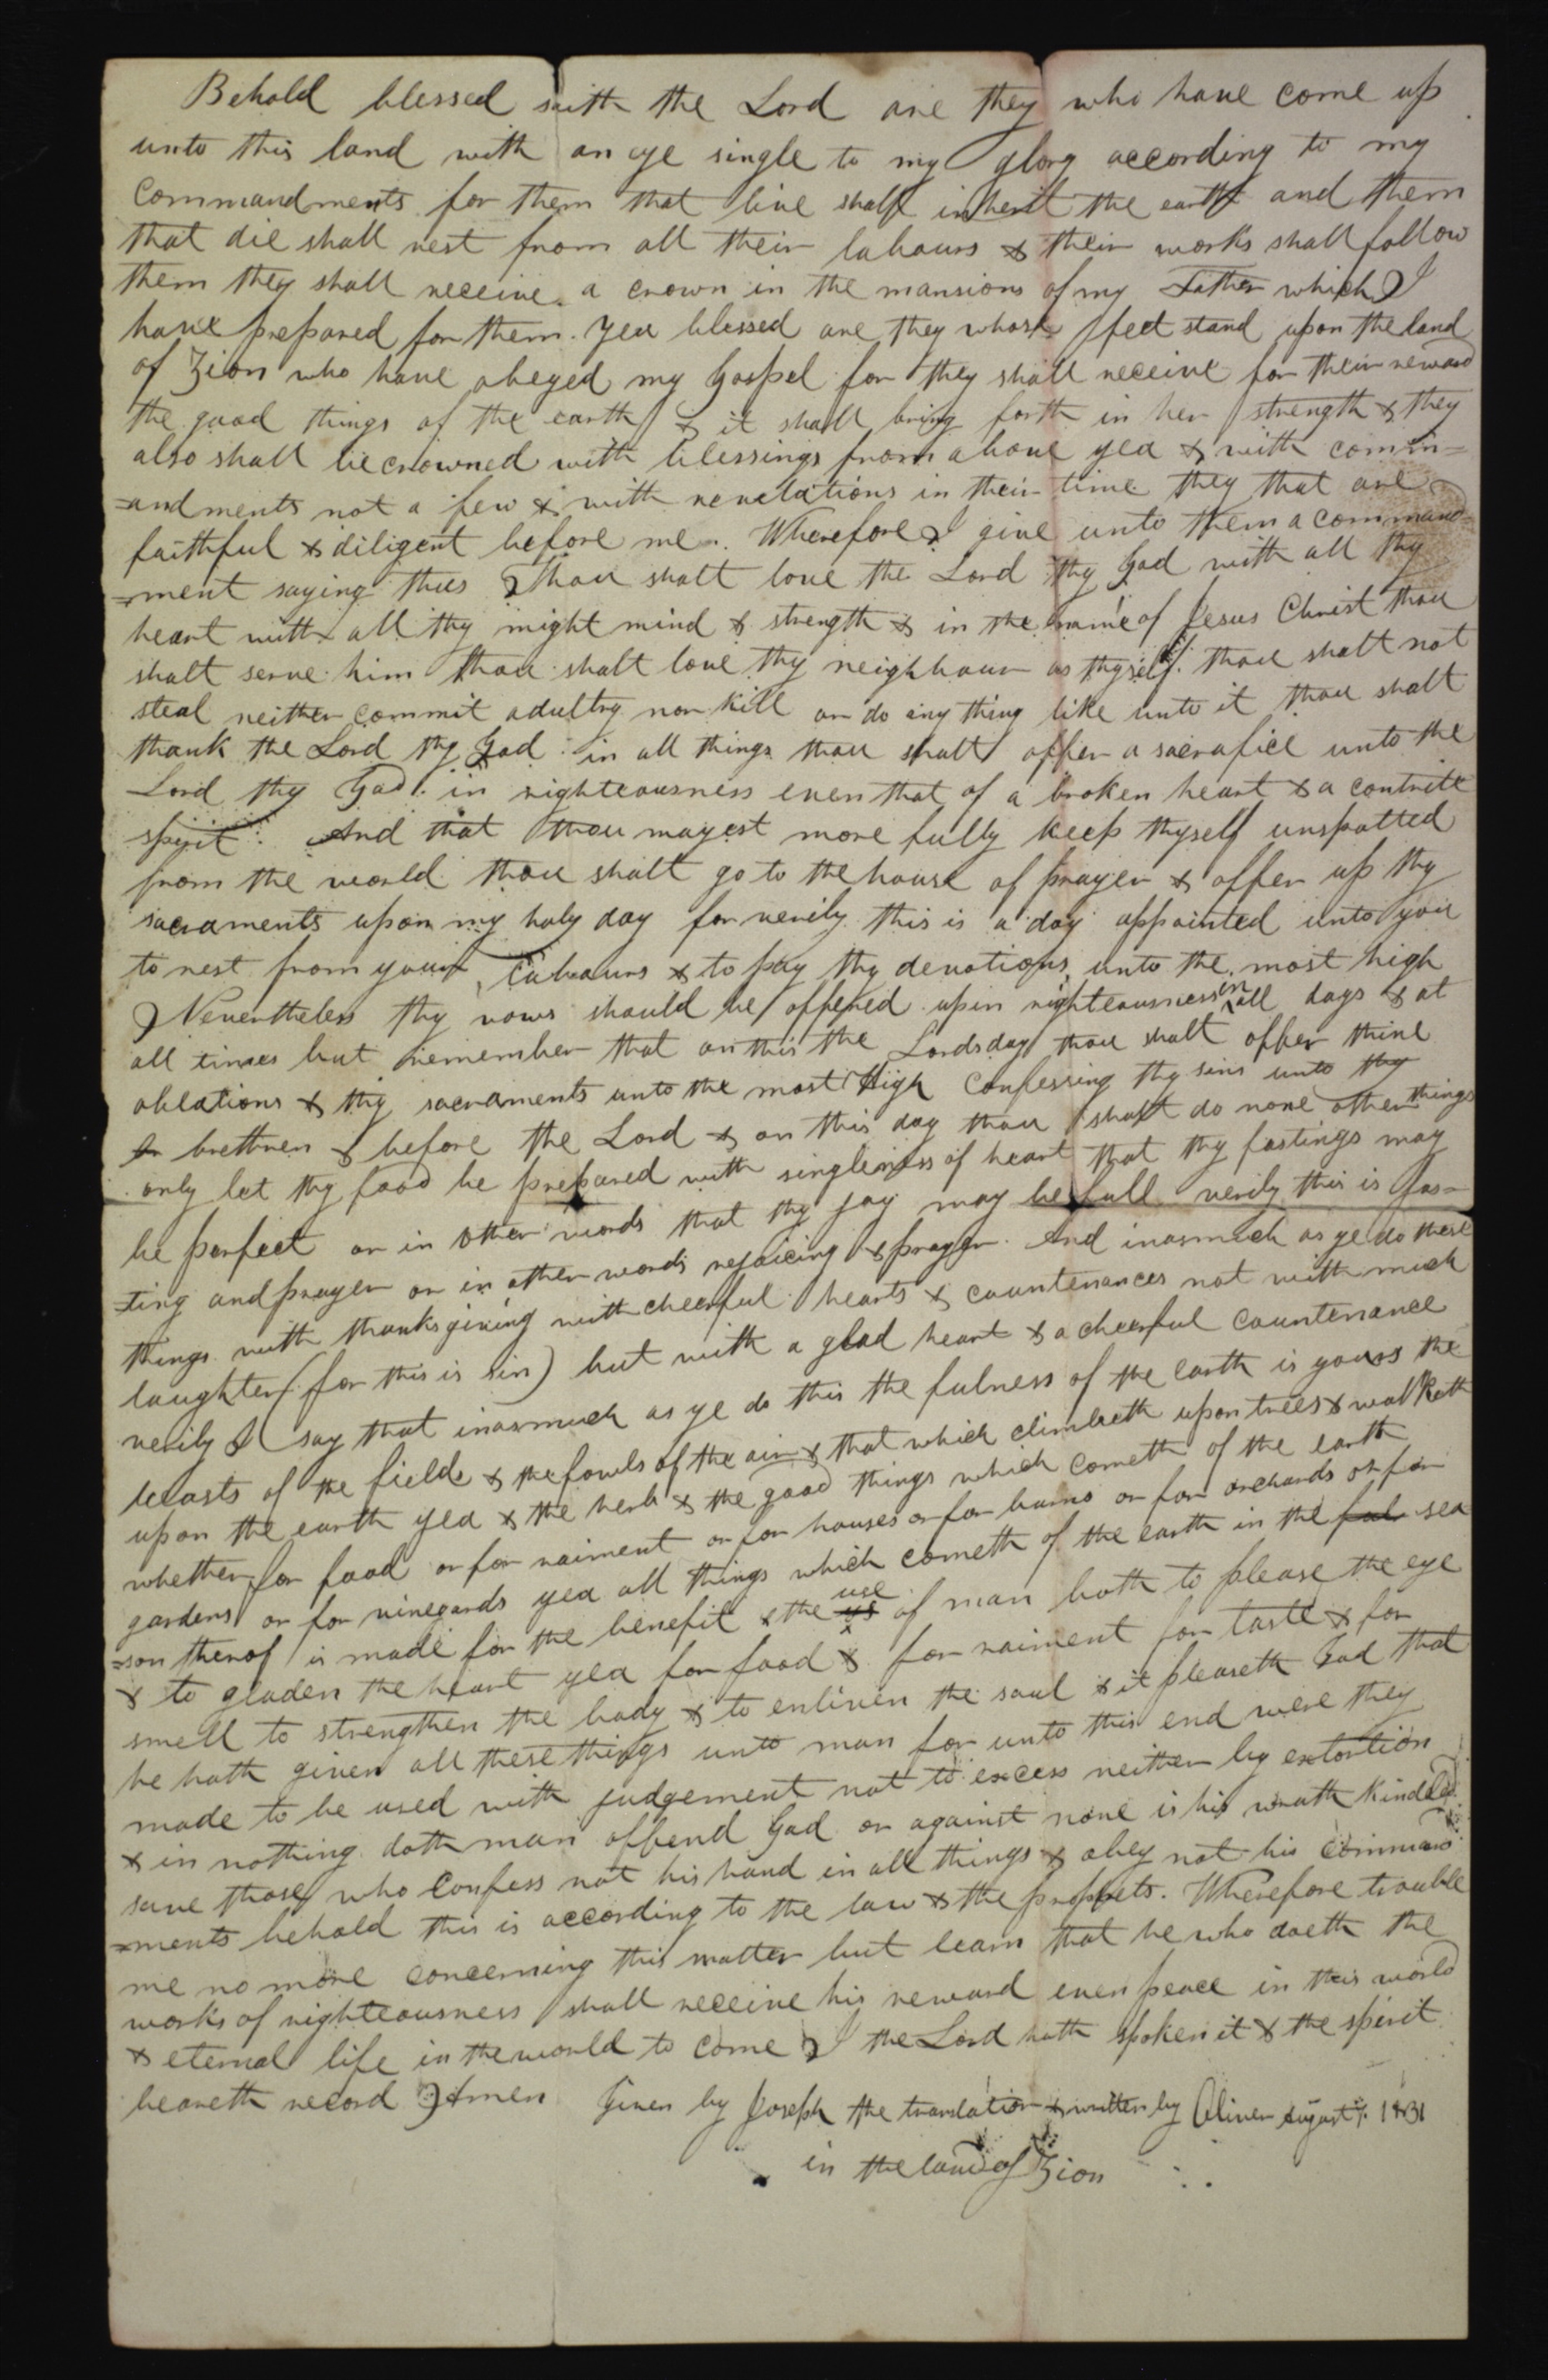 Behold blessed saith the Lord are they who have come up
unto this land with an eye single to my glory according to my
commandments for them that live shall inherit the earth and them
that die shall rest from all their labours & their works shall follow
them they shall receive a crown in the mansions of my Father which I
have prepared for them. Yea blessed are they whose feet stand upon the land
of Zion who have obeyed my Gospel for they shall receive for their reward
the good things of the earth & it shall bring forth in her strength & they
also shall be crowned with blessings from above yea & with comm=
=andments not a few & with revelations in their time they that are
faithful & diligent before me. Wherefore I give unto them a command=
=ment saying thus Thou shalt love the Lord thy God with all thy
heart with all thy might mind & strength & in the name of Jesus Christ thou
shalt serve him thou shalt love thy neighbour as thyself. thou shalt not
steal neither commit adultry nor kill or do any thing like unto it thou shalt
thank the Lord thy God in all things thou shalt offer a sacrafice unto the
Lord thy God in righteousness even that of a broken heart & a contrite
spirit: And that thou mayest more fully keep thyself unspotted
from the world thou shalt go to the house of prayer & offer up thy
sacraments upon my holy day for verily this is a day appointed unto you
to rest from your labours & to pay thy devotions unto the most high
Nevertheless thy vows should be offered up in righteousness in all days & at
all times but remember that on this the Lordsday thou shalt offer thine
oblations & thy sacraments unto the most High confessing thy sins unto thy
brethren & before the Lord & on this day thou shalt do none other things
only let thy food be prepared with singleness of heart that thy fastings may
be perfect or in other words that thy joy may be full verily this is fas=
=ting and prayer or in other words rejoicing & prayer. And inasmuch as ye do these
things with thanksgiving with cheerful hearts & countenances not with much
laughter (for this is sin) but with a glad heart & a cheerful countenance
verily I say that inasmuch as ye do this the fulness of the earth is yours the
beasts of the fields & the fowls of the air & that which climbeth upon trees & walketh
upon the earth yea & the herb & the good things which cometh of the earth
whether for food or for raiment or for houses or for barns or for orchards or for
gardens or for vineyards yea all things which cometh of the earth in the sea
=son therof is made for the benefit & the use of man both to please the eye
& to gladen the heart yea for food & for raiment for taste & for
smell to strengthen the body & to enliven the soul & it pleaseth God that
he hath given all these things unto man for unto this end were they
made to be used with judgement not to excess neither by extortion
& in nothing doth man offend God or against none is his wrath kindled
save those who confess not his hand in all things & obey not his command
=ments behold this is according to the law & the prophets. Wherefore trouble
me no more concerning this matter but learn that he who doeth the
works of righteousness shall receive his reward even peace in this world
& eternal life in the world to come I the Lord hath spoken it & the spirit
beareth record Amen Given by Joseph the translator & written by Oliver August 7. 1831
in the land of Zion